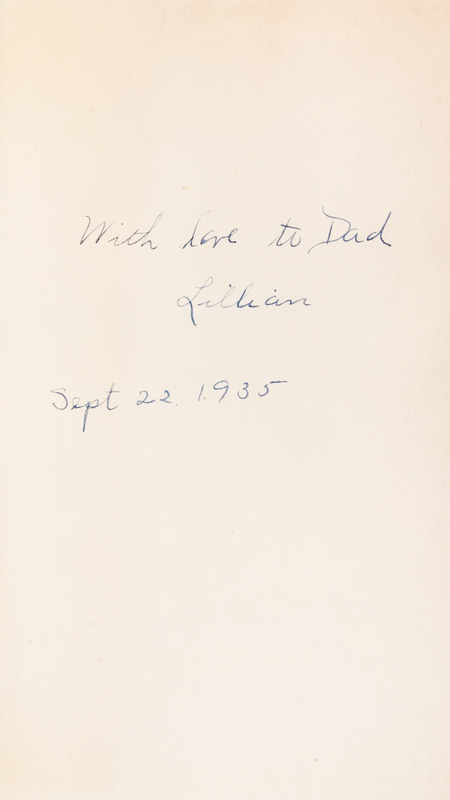 With love to Dad
Lillian
Sept 22. 1935